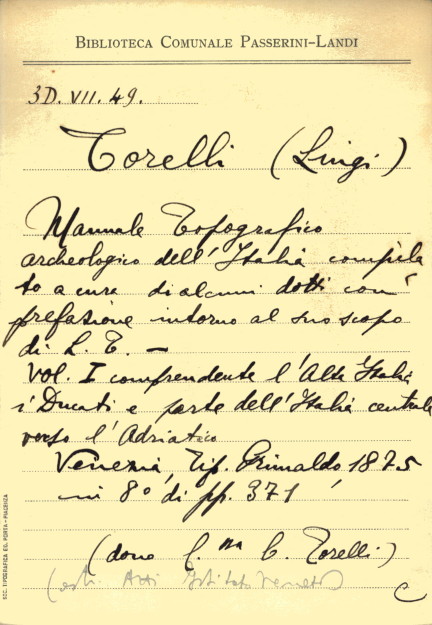 BIBLIOTECA COMUNALE PASSERINI-LANDI
3D. VII. 49.
Torelli (Luigi)
Manuale Topografico
archeologico dell'Italia compila
to a cura di alcuni dotti con
prefazione intorno al suo scopo
di L. T. —
Vol. I comprendente l'Alta Italia
i Ducati e parte dell'Italia centrale
verso l'Adriatico
Venezia, Tip. Grimaldo 1875
in 8° di pp. 371
(dono C. Torelli)
Atti Istituto Veneto)
C
SOC. TIPOGRAFICA ED. PORTA - PIACENZA